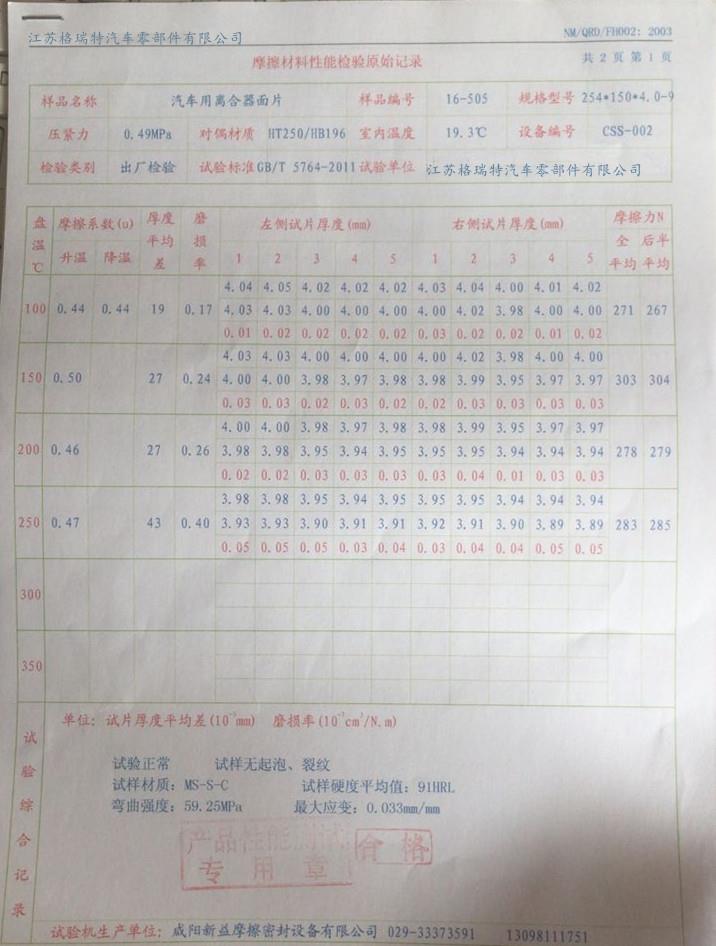 江苏格瑞特汽车零部件有限公司 NM/QRD/FH002: 2003
摩擦材料性能检验原始记录 共 2 页 第 1 页
样品名称 汽车用离合器面片 样品编号 16-505 规格型号 254*150*4.0-9
压紧力 0.49MPa 对偶材质 HT250/HB196 室内温度 19.3℃ 设备编号 CSS-002
检验类别 出厂检验 试验标准 GB/T 5764-2011 试验单位 江苏格瑞特汽车零部件有限公司
盘温℃ 摩擦系数(u) 厚度平均差 磨损率 左侧试片厚度(mm) 右侧试片厚度(mm) 摩擦力N
升温 降温 1 2 3 4 5 1 2 3 4 5 全平均 后半平均
4.04 4.05 4.02 4.02 4.02 4.03 4.04 4.00 4.01 4.02
100 0.44 0.44 19 0.17 4.03 4.03 4.00 4.00 4.00 4.00 4.02 3.98 4.00 4.00 271 267
0.01 0.02 0.02 0.02 0.02 0.03 0.02 0.02 0.01 0.02
4.03 4.03 4.00 4.00 4.00 4.00 4.02 3.98 4.00 4.00
150 0.50 27 0.24 4.00 4.00 3.98 3.97 3.98 3.98 3.99 3.95 3.97 3.97 303 304
0.03 0.03 0.02 0.03 0.02 0.02 0.03 0.03 0.03 0.03
4.00 4.00 3.98 3.97 3.98 3.98 3.99 3.95 3.97 3.97
200 0.46 27 0.26 3.98 3.98 3.95 3.94 3.95 3.95 3.95 3.94 3.94 3.94 278 279
0.02 0.02 0.03 0.03 0.03 0.03 0.04 0.01 0.03 0.03
3.98 3.98 3.95 3.94 3.95 3.95 3.95 3.94 3.94 3.94
250 0.47 43 0.40 3.93 3.93 3.90 3.91 3.91 3.92 3.91 3.90 3.89 3.89 283 285
0.05 0.05 0.05 0.03 0.04 0.03 0.04 0.04 0.05 0.05
300
350
试验综合记录
单位: 试片厚度平均差(10⁻³mm) 磨损率(10⁻⁷cm³/N.m)
试验正常 试样无起泡、裂纹
试样材质: MS-S-C 试样硬度平均值: 91HRL
弯曲强度: 59.25MPa 最大应变: 0.033mm/mm
产品性能测试 合格
专用章
试验机生产单位: 咸阳新益摩擦密封设备有限公司 029-33373591 13098111751